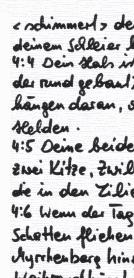 < schimmert > de
deinem Schleier h
4:4 Dein Hals is
der rund gebaut
hängen daran, s
Helden.
4:5 Deine beide
zwei Kitze, Zwill
die in den Lilie
4:6 Wenn der Tag
Schatten fliehen
Myrrhenberg hin